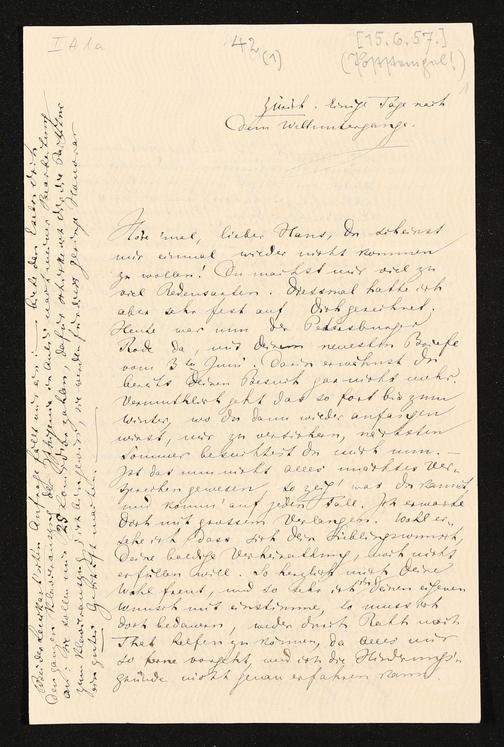 I A 1 a
42
(1)
[15.6.57.]
(Poststempel!)
1
Zürich. Einige Tage nach
dem Weltuntergange.
Höre 'mal, lieber Hans, Du scheinst
mir einmal wieder nicht kommen
zu wollen! Du machst mir viel zu
viel Redensarten. Diesmal hatte ich
aber sehr fest auf Dich gerechnet.
Heute war nun der Petersburger
Rode da, mit Deinem neuesten Briefe
vom 3ten Juni. Darin erwähnst Du
bereits Deinen Besuch gar nicht mehr.
Vermuthlich geht das so fort bis zum
Winter, wo Du dann wieder anfangen
wirst, mir zu versichern, nächsten
Sommer besuchtest Du mich nun. —
Ist das nun nicht alles machtes Ver-
sprechen gewesen, so zeig' was Du kannst,
und komm' auf jeden Fall. Ich erwarte
Dich mit grossem Verlangen. Wohl er-
sehe ich dass sich Dein Lieblingswunsch,
Deine baldige Verheirathung, noch nicht
erfüllen will. So herzlich mich Deine
Wahl freut, und so sehr ich in Deinen eigenen
Wunsch mit einstimme, so muss ich
doch bedauern, weder durch Rath noch
That helfen zu können, da alles mir
so ferne vorgeht, und ich die Hinderungs-
gründe nicht genau erfahren kann.
Anfrage fällt mir ein: — biete den
den ganzen Klavierauszug der Iphigenia in Aulis nach meiner Bearbeitung
an: sie sollen mir 25 Louisd'or zahlen, dafür
zum Klavierauszug
ein gutes Geschäft machen. —